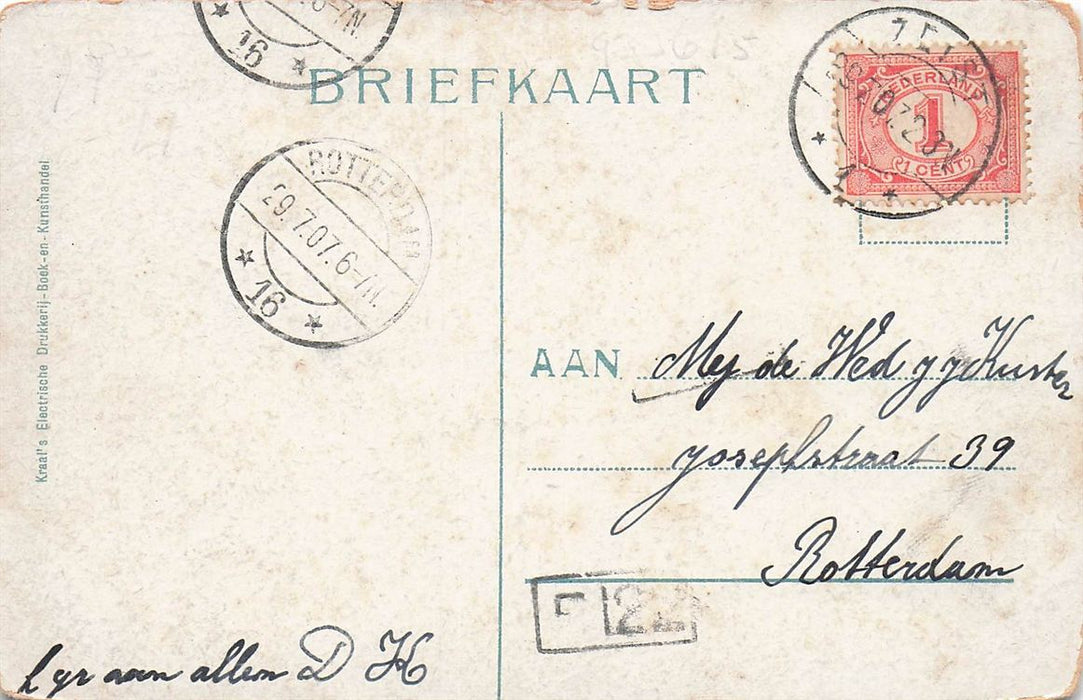 6-7N.
16
BRIEFKAART
ZEIST
1
NEDERLAND
1
1 CENT
ROTTERDAM
29.7.07.6-7N.
16
Kraal's Electrische Drukkerij-Boek-en-Kunsthandel
AAN Mej de Wed J J Kuster
Josephstraat 39
Rotterdam
22
aan allem D H